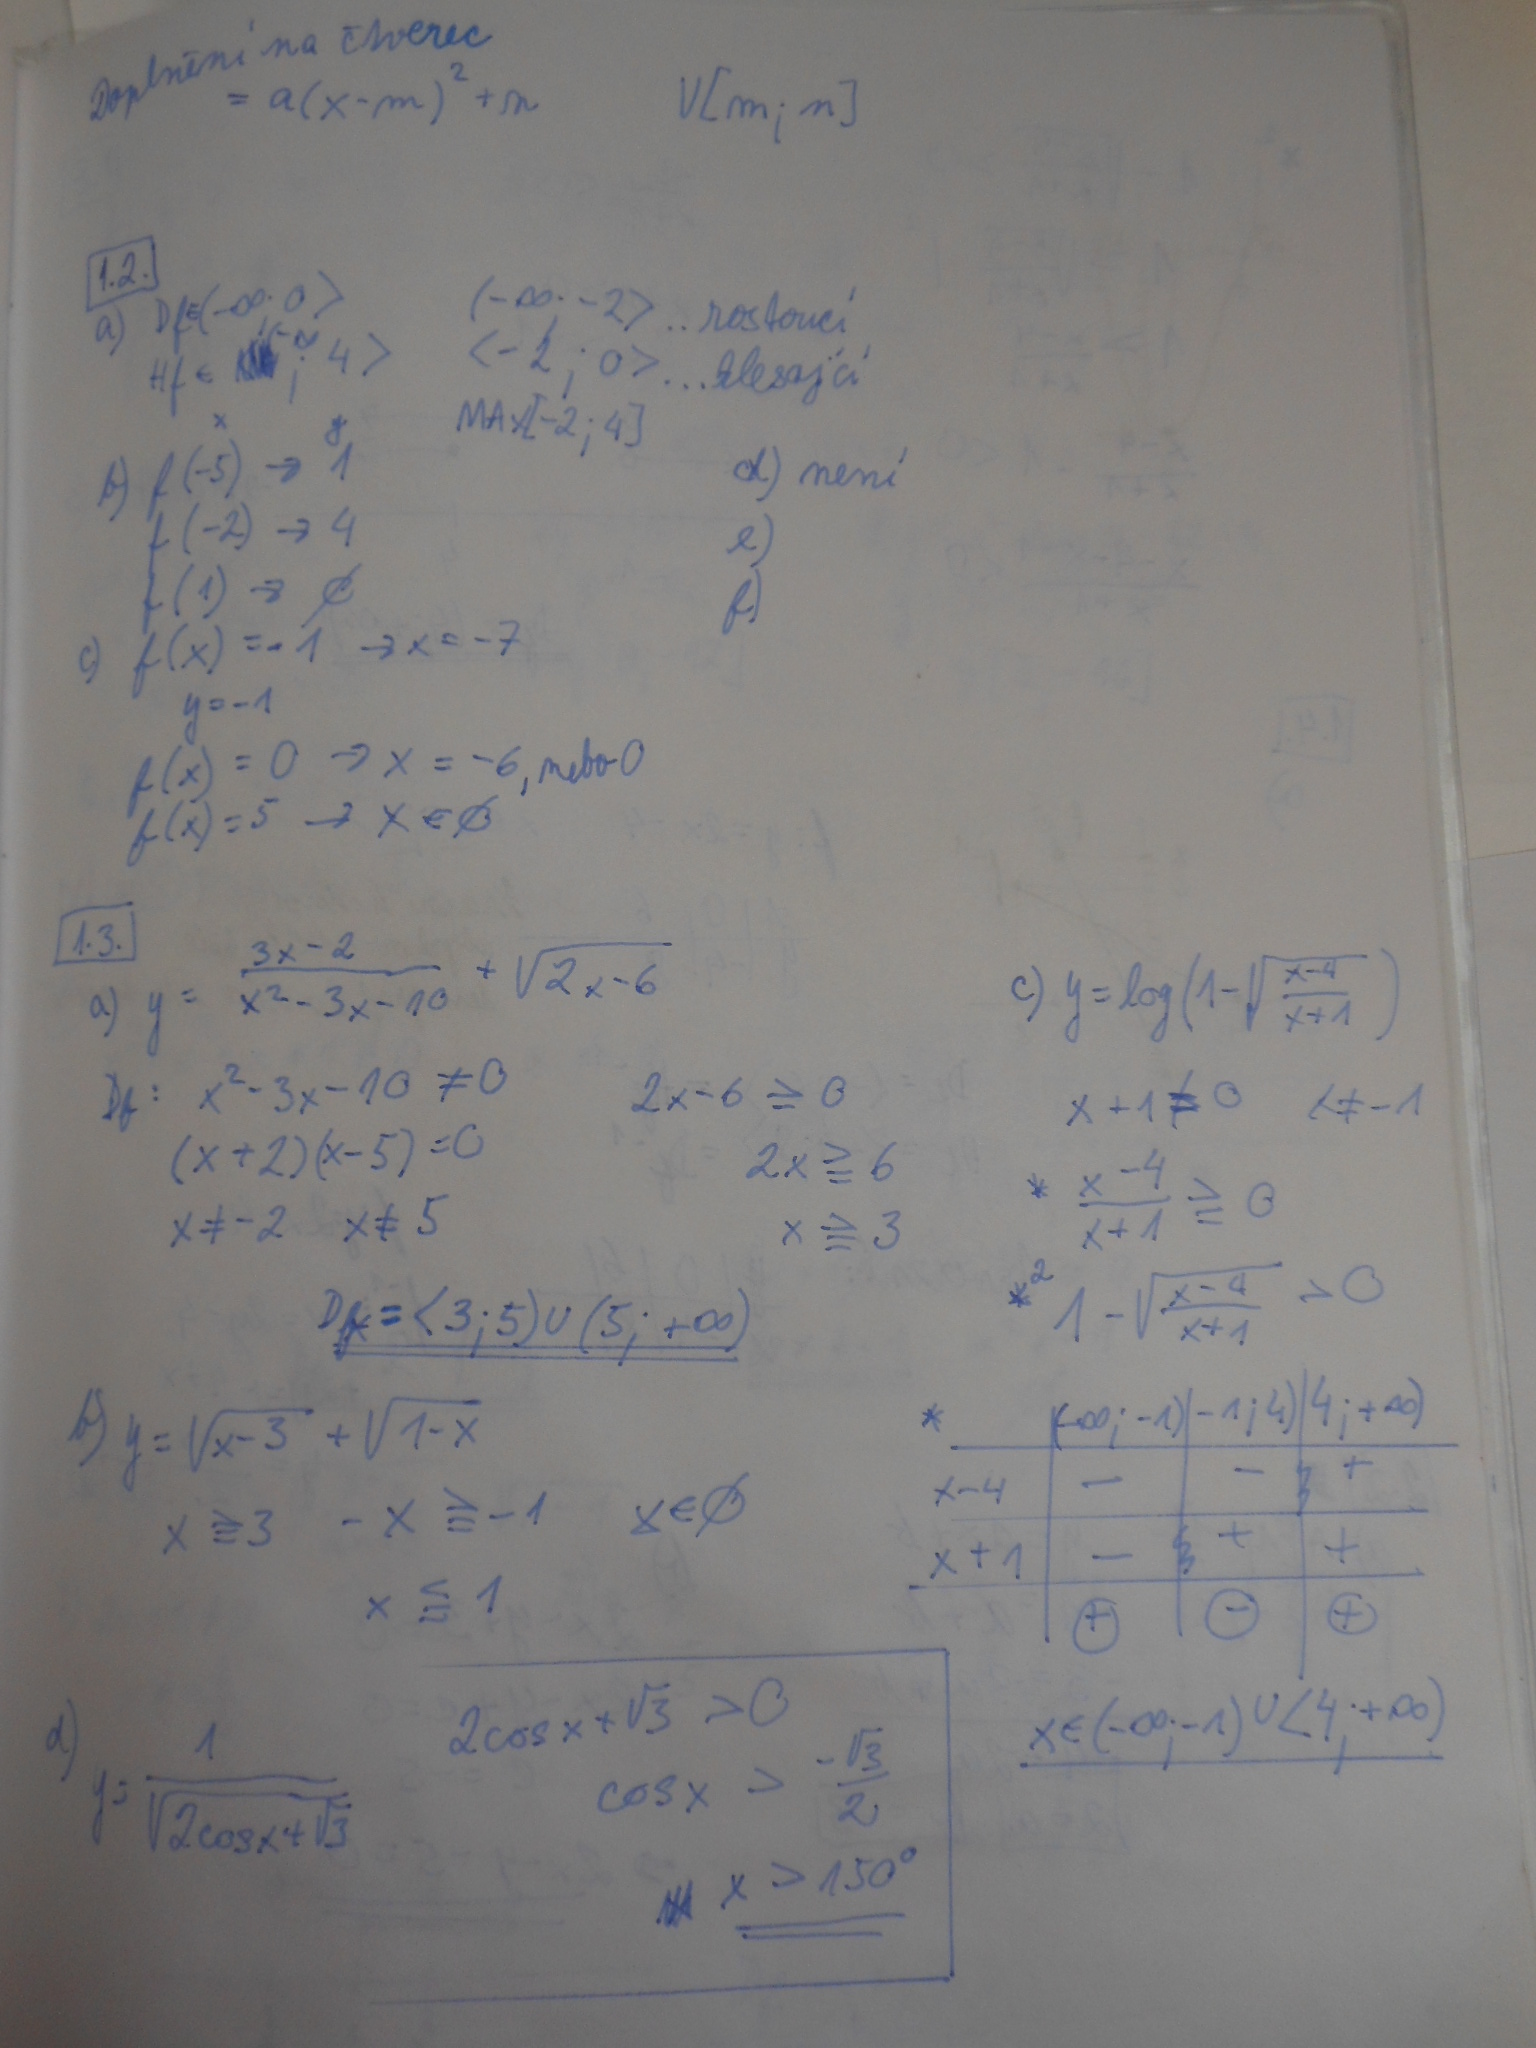 Doplnění na čtverec
= a(x-m)² + n V[m; n]
1.2.
a) Df∈(-∞; 0> (-∞; -2> .. rostoucí
Hf∈ (-∞; 4> <-2; 0> ... klesající
MAX[-2; 4]
x y
b) f(-5) → 1
f(-2) → 4
f(1) → ∅
d) není
e)
f)
c) f(x) = -1 → x = -7
y = -1
f(x) = 0 → x = -6, nebo 0
f(x) = 5 → x ∈ ∅
1.3.
a) y = (3x-2)/(x²-3x-10) + √(2x-6)
Df: x²-3x-10 ≠ 0 2x-6 ≧ 0
(x+2)(x-5) = 0 2x ≧ 6
x ≠ -2 x ≠ 5 x ≧ 3
Df = <3; 5) ∪ (5; +∞)
b) y = √(x-3) + √(1-x)
x ≧ 3 -x ≧ -1 x ∈ ∅
x ≦ 1
c) y = log(1-√((x-4)/(x+1)))
x+1 ≠ 0 x ≠ -1
* (x-4)/(x+1) ≧ 0
*² 1-√((x-4)/(x+1)) > 0
* (-∞; -1) -1; 4) 4; +∞)
x-4 - - +
x+1 - + +
+ - +
x∈(-∞; -1) ∪ <4; +∞)
d) y = 1/√(2cosx+√3)
2cosx+√3 > 0
cosx > -√3/2
x > 150°